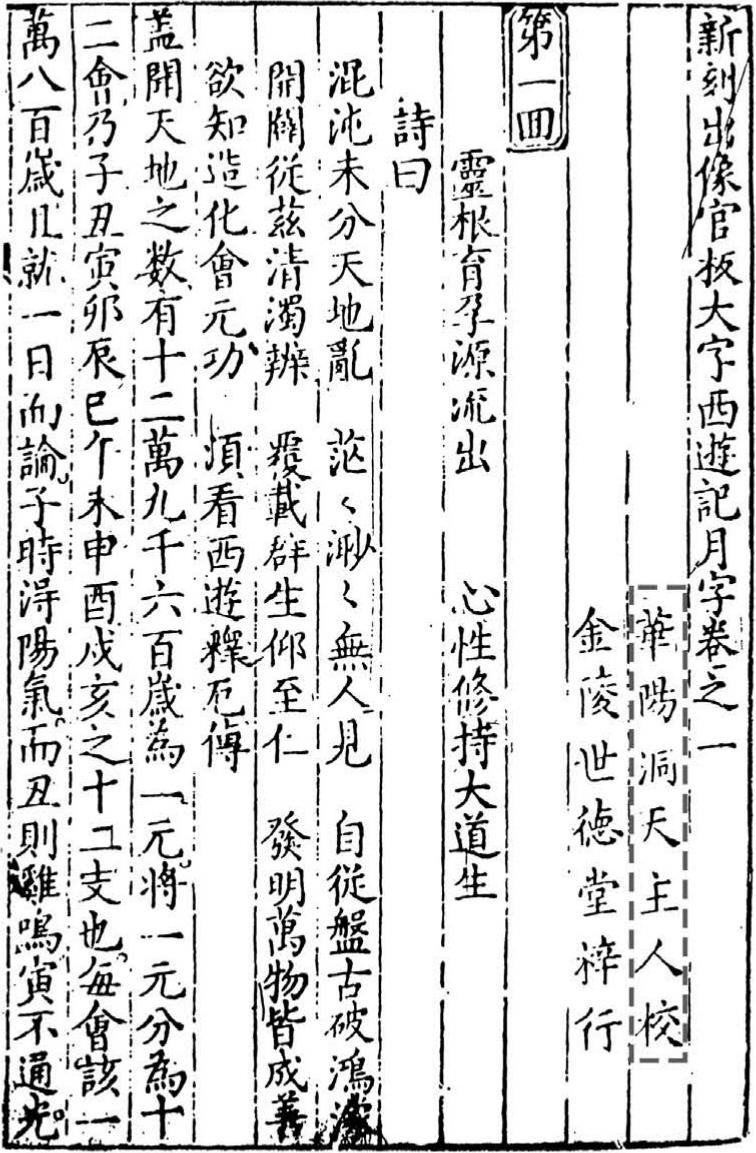 新刻出像官板大字西遊記月字卷之一
華陽洞天主人校
金陵世德堂梓行
第一回
靈根育孕源流出 心性修持大道生
詩曰
混沌未分天地亂 茫〻渺〻無人見 自從盤古破鴻濛
開闢從茲清濁辨 覆載群生仰至仁 發明萬物皆成善
欲知造化會元功 須看西遊釋厄傳
盖聞天地之數有十二萬九千六百歲為一元將一元分為十
二會乃子丑寅卯辰巳午未申酉戌亥之十二支也每會該一
萬八百歲且就一日而論子時得陽氣而丑則雞鳴寅不通光